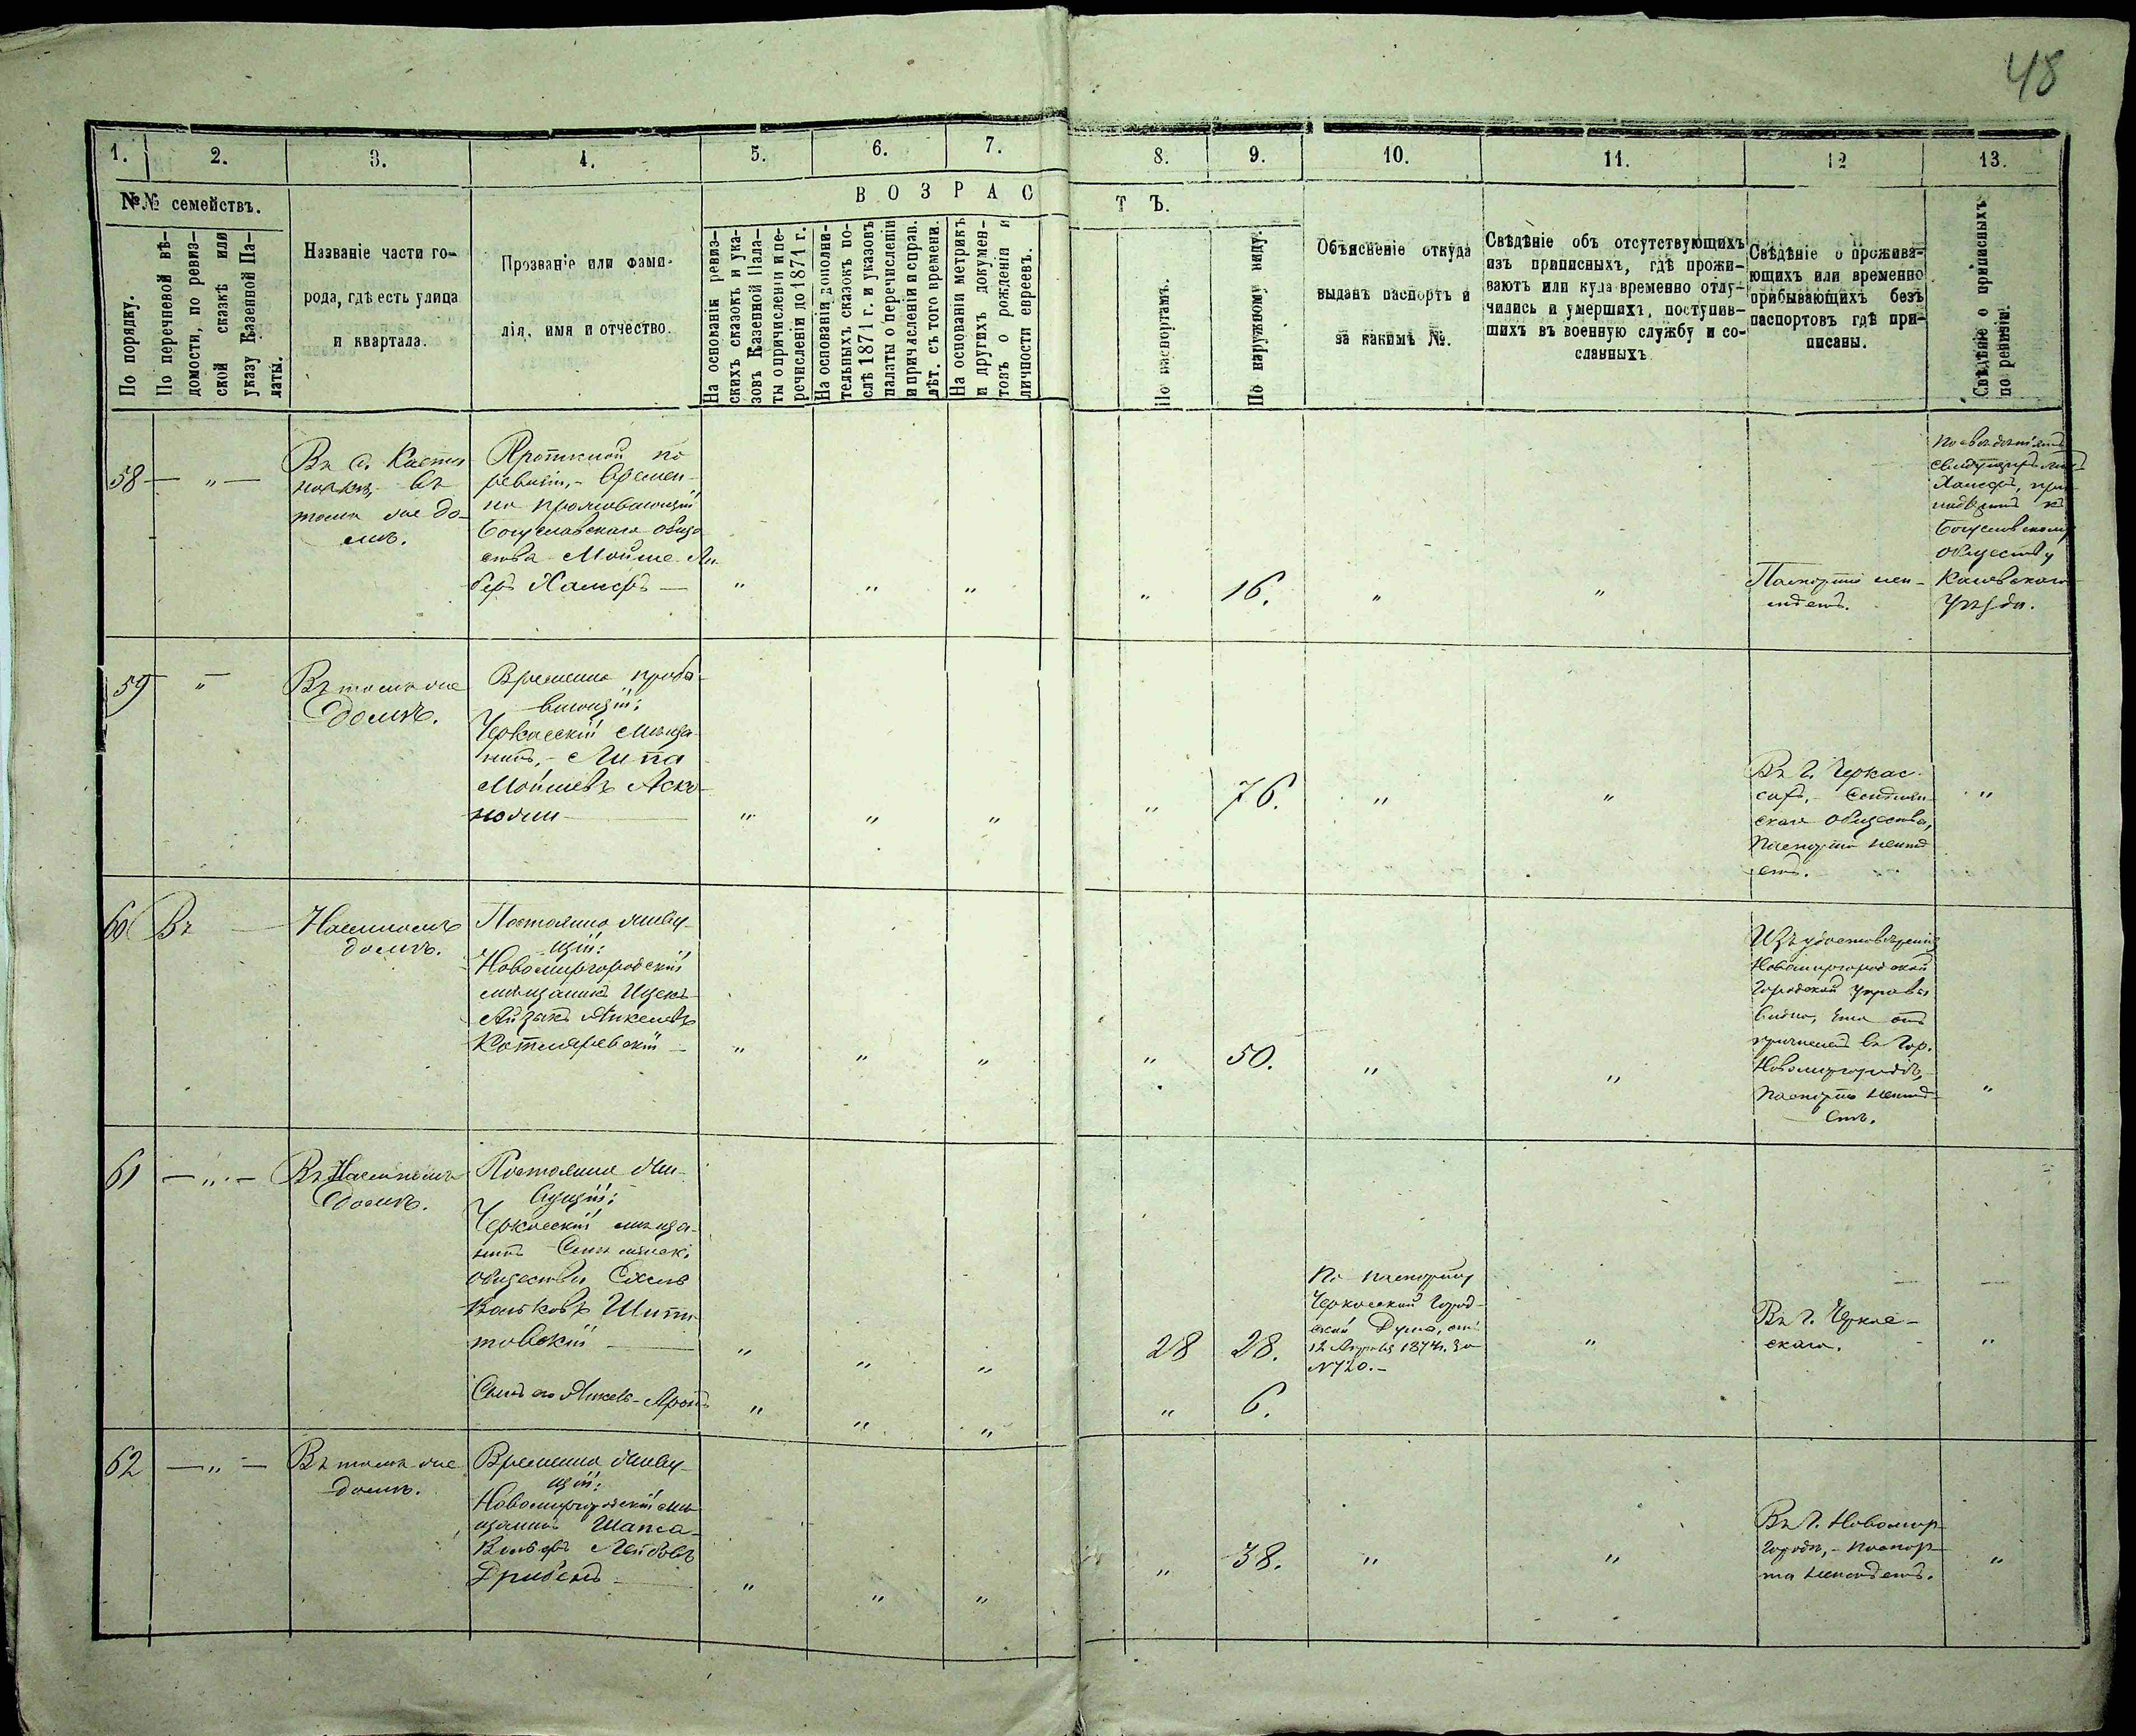 48
1. 2. 3. 4. 5. 6. 7. 8. 9. 10. 11. 12 13.
№№ семействъ.
По порядку.
По перечневой вѣ-
домости, по ревиз-
ской сказкѣ или
указу Казенной Па-
латы.
Названіе части го-
рода, гдѣ есть улица
и квартала.
Прозваніе или фами-
лія, имя и отчество.
ВОЗРАС
ТЪ.
На основаніи ревиз-
скихъ сказокъ и ука-
зовъ Казенной Пала-
ты о причисленіи и пе-
речисленіи до 1871 г.
На основаніи дополни-
тельныхъ сказокъ по-
слѣ 1871 г. и указовъ
палаты о перечисленіи
и причисленіи и справ.
лѣт. съ того времени.
На основаніи метрикъ
и другихъ докумен-
товъ о рожденіи и
личности евреевъ.
По паспортамъ.
По наружному виду.
Объясненіе откуда
выданъ паспортъ и
за какимъ №.
Свѣдѣніе объ отсутствующихъ
изъ приписныхъ, гдѣ прожи-
ваютъ или куда временно отлу-
чились и умершихъ, поступив-
шихъ въ военную службу и со-
сланныхъ
Свѣдѣніе о прожива-
ющихъ или временно
прибывающихъ безъ
паспортовъ гдѣ при-
писаны.
Свѣдѣніе о приписныхъ
по ревизіи.
58 — " —
Въ с.
въ
томъ же до-
мѣ.
по
ревизіи, - Времен-
но проживающій
Богуславскаго обще
ства Мойше Ли
беръ Хамеръ —
" " " " 16. " "
Паспорта неи-
мѣетъ.
Хамеръ, при-
къ
Богуславскому
обществу
Каневскаго
уѣзда.
59 "
Въ томъ же
домѣ.
Временно пребы-
вающій:
Черкасскій мѣща-
нинъ, - Липа
Мойшевъ
" " " " 76. " "
Въ г. Черкас-
сахъ, -
скаго общества,
паспорта неимѣ
етъ.
"
60 Въ —
Наемномъ
домѣ.
Постоянно живу-
щій:
Новомиргородскій
мѣщанинъ Ицекъ-
Айзикъ Янкелевъ
Котляревскій —
" " " " 50. " "
Изъ удостовѣренія
Новомиргородской
Городской Управы
видно, что онъ
причисленъ въ Гор.
Новомиргородѣ,
паспорта неимѣ-
етъ.
"
61 — " —
Въ Наемномъ
домѣ.
Постоянно жи-
вущій:
Черкасскій мѣща-
нинъ
общества
" " " 28 28.
По паспорту
Черкасской Город-
ской Думы, отъ
12 Апрѣля 1874 г. за
№ 720. -
"
Въ г. Черкас-
скаго.
"
Сынъ его Янкель-Аронъ
" " " " 6.
62 — " —
Въ томъ же
домѣ.
Временно живу-
щій:
Новомиргородскій мѣ-
щанинъ Шапса-
Вольфъ Лейбовъ
" " " " 38. " "
Въ г. Новомир-
городѣ, - паспор-
та неимѣетъ.
"